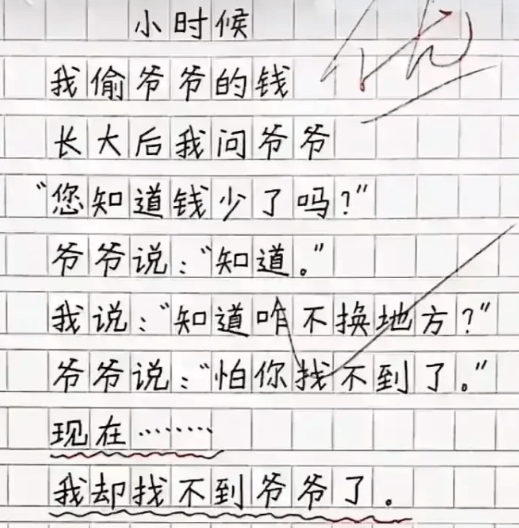 小时候
优
我偷爷爷的钱
长大后我问爷爷
“您知道钱少了吗？”
爷爷说：“知道。”
我说：“知道咋不换地方？”
爷爷说：“怕你找不到了。”
现在………
我却找不到爷爷了。